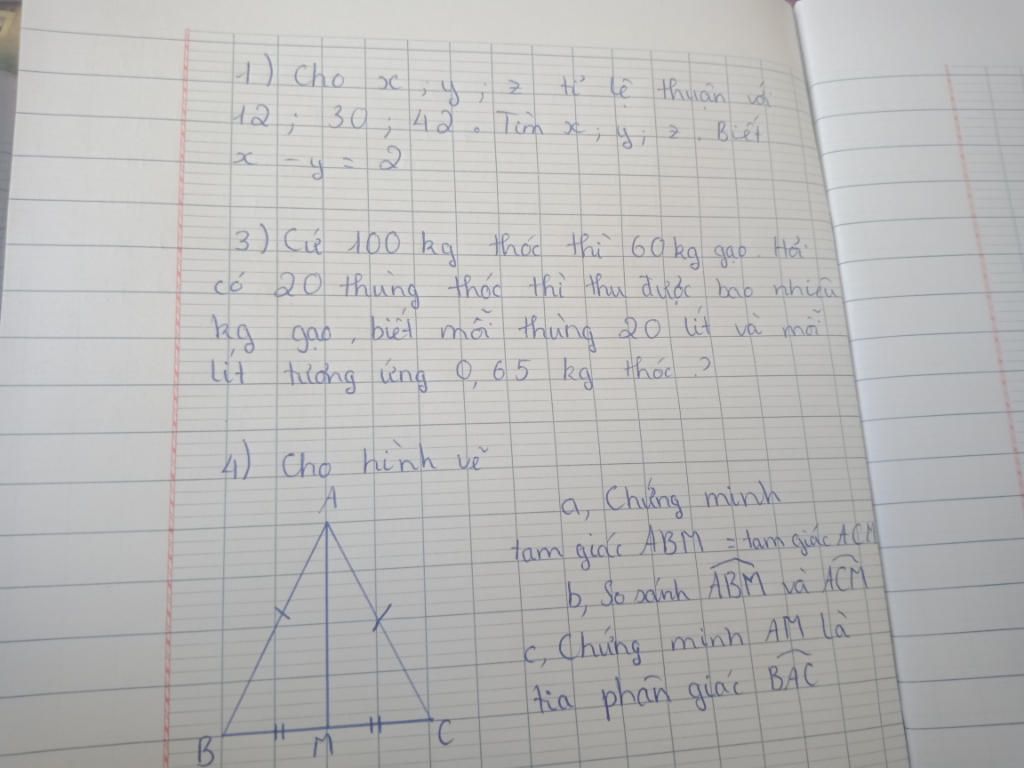 1) Cho x ; y ; z tỉ lệ thuận với
12 ; 30 ; 42. Tính x ; y ; z. Biết
x - y = 2
3) Cứ 100 kg thóc thì 60kg gạo. Hỏi
có 20 thùng thóc thì thu được bao nhiêu
kg gạo, biết mỗi thùng 20 lít và mỗi
lít tương ứng 0,65 kg thóc ?
4) Cho hình vẽ
A
a, Chứng minh
tam giác ABM = tam giác ACM
b, So sánh ABM và ACM
c, Chứng minh AM là
tia phân giác BAC
B M C